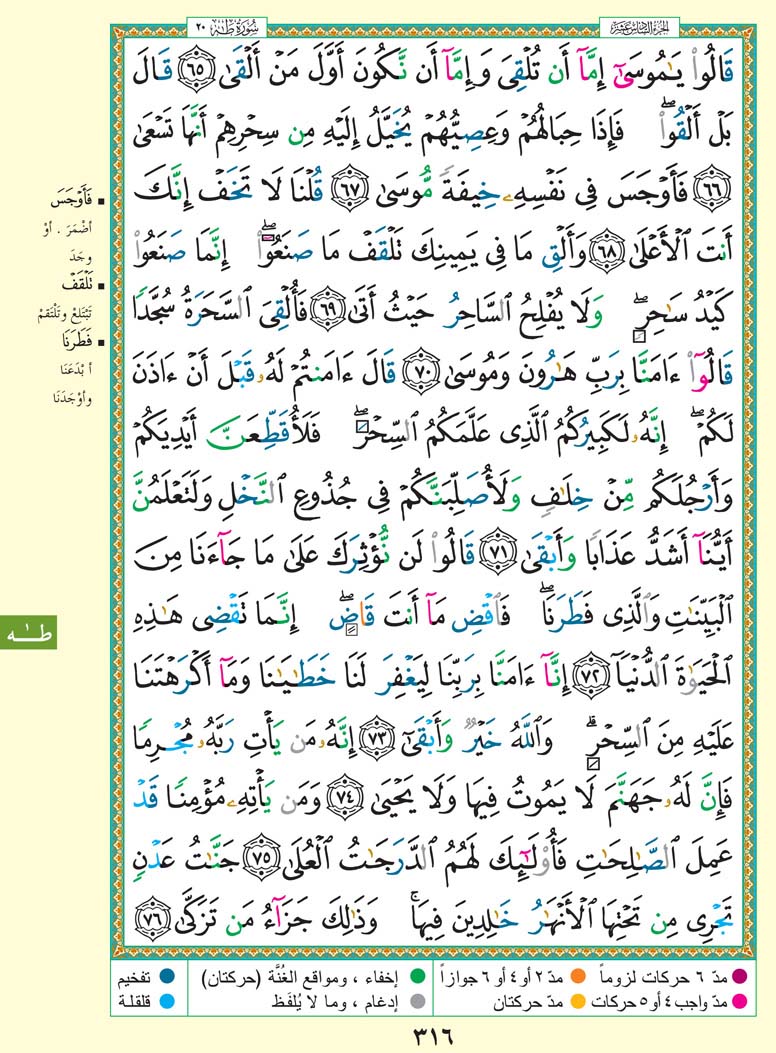 الجزء السادس عشر
سورة طه ٢٠
قَالُوا۟ يَـٰمُوسَىٰٓ إِمَّآ أَن تُلْقِىَ وَإِمَّآ أَن نَّكُونَ أَوَّلَ مَنْ أَلْقَىٰ ٦٥ قَالَ
بَلْ أَلْقُوا۟ ۖ فَإِذَا حِبَالُهُمْ وَعِصِيُّهُمْ يُخَيَّلُ إِلَيْهِ مِن سِحْرِهِمْ أَنَّهَا تَسْعَىٰ
٦٦ فَأَوْجَسَ فِى نَفْسِهِۦ خِيفَةً مُّوسَىٰ ٦٧ قُلْنَا لَا تَخَفْ إِنَّكَ
أَنتَ ٱلْأَعْلَىٰ ٦٨ وَأَلْقِ مَا فِى يَمِينِكَ تَلْقَفْ مَا صَنَعُوٓا۟ ۖ إِنَّمَا صَنَعُوا۟
كَيْدُ سَـٰحِرٍ ۖ وَلَا يُفْلِحُ ٱلسَّاحِرُ حَيْثُ أَتَىٰ ٦٩ فَأُلْقِىَ ٱلسَّحَرَةُ سُجَّدًا
قَالُوٓا۟ ءَامَنَّا بِرَبِّ هَـٰرُونَ وَمُوسَىٰ ٧٠ قَالَ ءَامَنتُمْ لَهُۥ قَبْلَ أَنْ ءَاذَنَ
لَكُمْ ۖ إِنَّهُۥ لَكَبِيرُكُمُ ٱلَّذِى عَلَّمَكُمُ ٱلسِّحْرَ ۖ فَلَأُقَطِّعَنَّ أَيْدِيَكُمْ
وَأَرْجُلَكُم مِّنْ خِلَـٰفٍ وَلَأُصَلِّبَنَّكُمْ فِى جُذُوعِ ٱلنَّخْلِ وَلَتَعْلَمُنَّ
أَيُّنَآ أَشَدُّ عَذَابًا وَأَبْقَىٰ ٧١ قَالُوا۟ لَن نُّؤْثِرَكَ عَلَىٰ مَا جَآءَنَا مِنَ
ٱلْبَيِّنَـٰتِ وَٱلَّذِى فَطَرَنَا ۖ فَٱقْضِ مَآ أَنتَ قَاضٍ ۖ إِنَّمَا تَقْضِى هَـٰذِهِ
ٱلْحَيَوٰةَ ٱلدُّنْيَآ ٧٢ إِنَّآ ءَامَنَّا بِرَبِّنَا لِيَغْفِرَ لَنَا خَطَـٰيَـٰنَا وَمَآ أَكْرَهْتَنَا
عَلَيْهِ مِنَ ٱلسِّحْرِ ۗ وَٱللَّهُ خَيْرٌ وَأَبْقَىٰٓ ٧٣ إِنَّهُۥ مَن يَأْتِ رَبَّهُۥ مُجْرِمًا
فَإِنَّ لَهُۥ جَهَنَّمَ لَا يَمُوتُ فِيهَا وَلَا يَحْيَىٰ ٧٤ وَمَن يَأْتِهِۦ مُؤْمِنًا قَدْ
عَمِلَ ٱلصَّـٰلِحَـٰتِ فَأُو۟لَـٰٓئِكَ لَهُمُ ٱلدَّرَجَـٰتُ ٱلْعُلَىٰ ٧٥ جَنَّـٰتُ عَدْنٍ
تَجْرِى مِن تَحْتِهَا ٱلْأَنْهَـٰرُ خَـٰلِدِينَ فِيهَا ۚ وَذَٰلِكَ جَزَآءُ مَن تَزَكَّىٰ ٧٦
فَأَوْجَسَ
أضْمَرَ . أوْ
وجَدَ
تَلْقَفْ
تَبْتَلِعْ وتَلْتَقِمْ
فَطَرَنَا
أبْدَعَنَا
وأوْجَدَنَا
طـٰه
مدّ ٦ حركات لزوماً
مدّ ٢ أو ٤ أو ٦ جوازاً
إخفاء ، ومواقع الغُنَّة (حركتان)
تفخيم
مدّ واجب ٤ أو ٥ حركات
مدّ حركتان
إدغام ، وما لا يُلفَظ
قلقلة
٣١٦